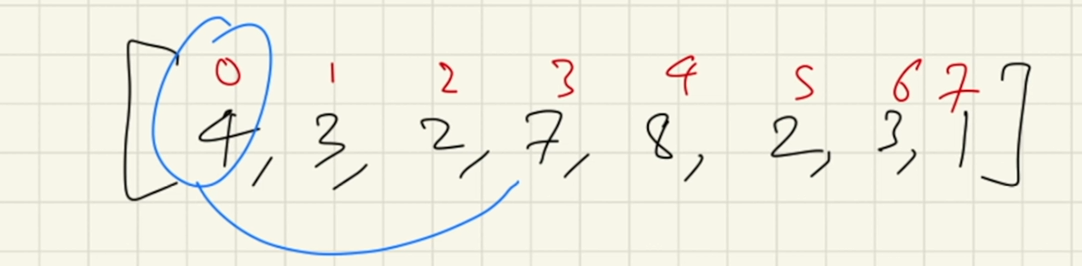 0 1 2 3 4 5 6 7
[4, 3, 2, 7, 8, 2, 3, 1]